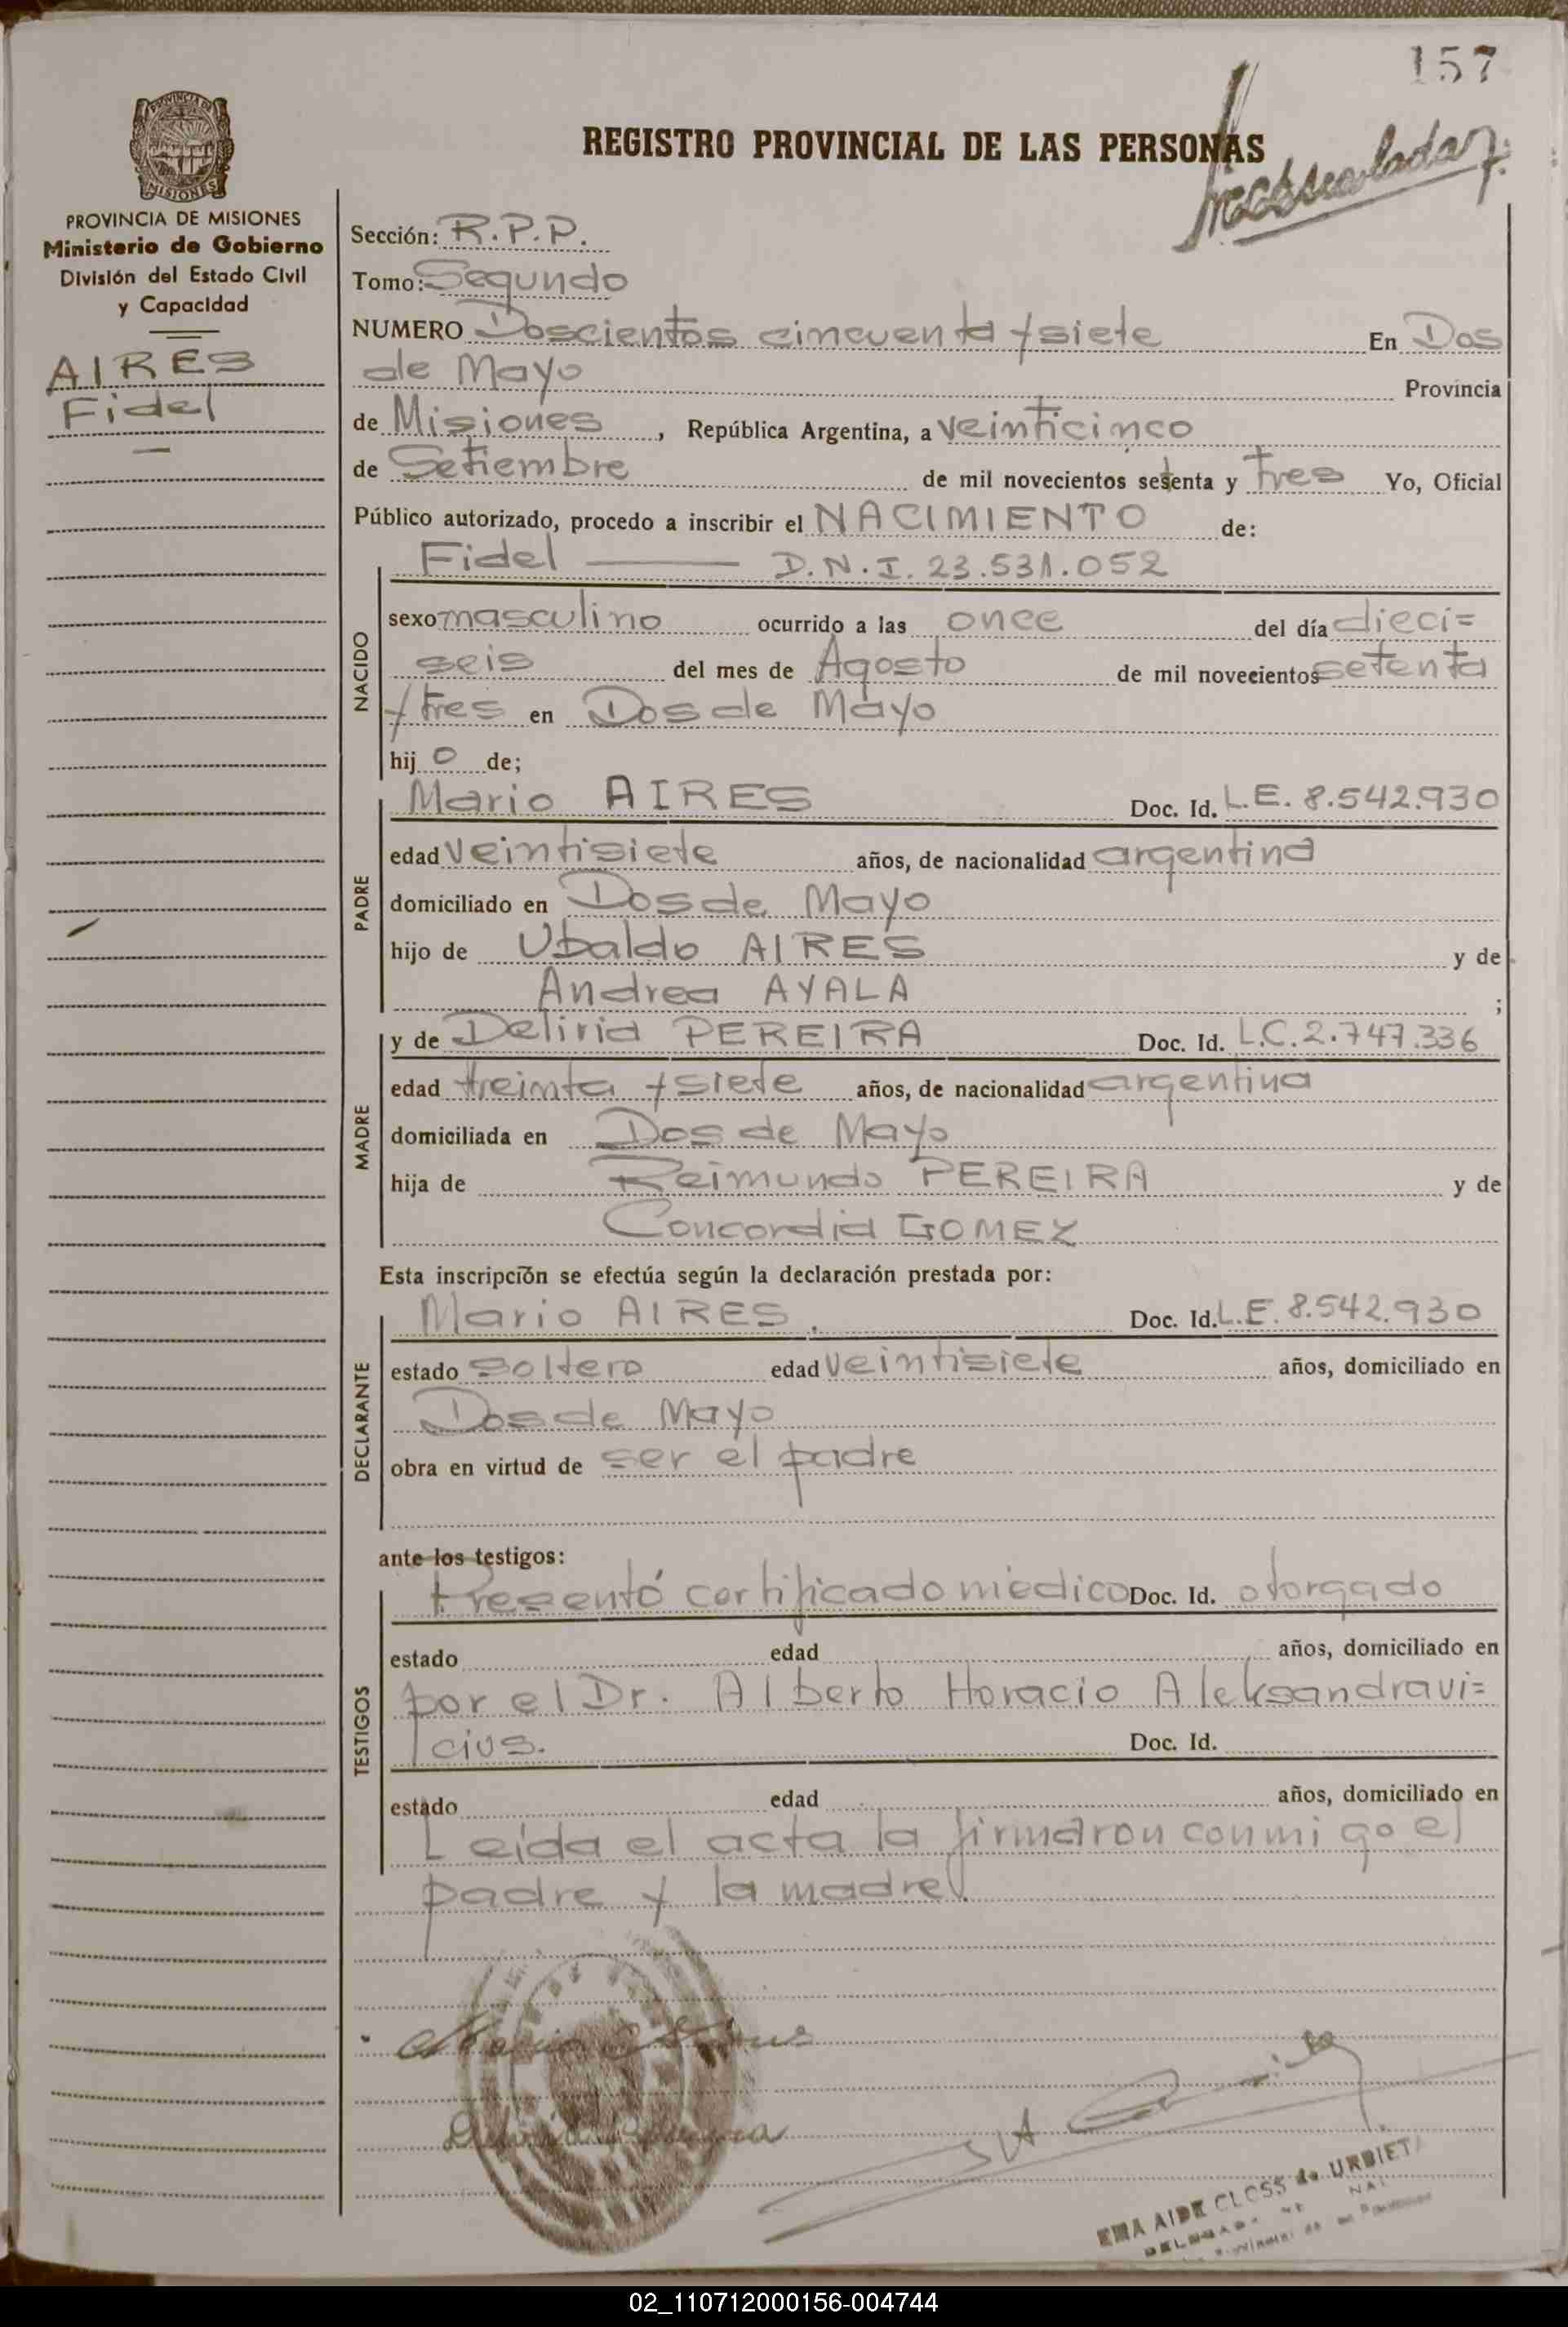 157
REGISTRO PROVINCIAL DE LAS PERSONAS
PROVINCIA DE
MISIONES
PROVINCIA DE MISIONES
Ministerio de Gobierno
División del Estado Civil
y Capacidad
AIRES
Fidel
Sección: R.P.P.
Tomo: Segundo
NUMERO Doscientos cincuenta y siete En Dos
de Mayo Provincia
de Misiones, República Argentina, a veinticinco
de Setiembre de mil novecientos setenta y tres Yo, Oficial
Público autorizado, procedo a inscribir el NACIMIENTO de:
NACIDO
Fidel —— D.N.I. 23.531.052
sexo masculino ocurrido a las once del día dieci=
seis del mes de Agosto de mil novecientos setenta
y tres en Dos de Mayo
hij o de;
PADRE
Mario AIRES Doc. Id. L.E. 8.542.930
edad veintisiete años, de nacionalidad argentina
domiciliado en Dos de Mayo
hijo de Ubaldo AIRES y de
Andrea AYALA ;
MADRE
y de Deliria PEREIRA Doc. Id. L.C. 2.747.336
edad treinta y siete años, de nacionalidad argentina
domiciliada en Dos de Mayo
hija de Reimundo PEREIRA y de
Concordia GOMEZ
Esta inscripción se efectúa según la declaración prestada por:
DECLARANTE
Mario AIRES. Doc. Id. L.E. 8.542.930
estado soltero edad veintisiete años, domiciliado en
Dos de Mayo
obra en virtud de ser el padre
ante los testigos:
TESTIGOS
Presentó certificado médico Doc. Id. otorgado
estado edad años, domiciliado en
por el Dr. Alberto Horacio Aleksandravi=
cius. Doc. Id.
estado edad años, domiciliado en
Leída el acta la firmaron conmigo el
padre y la madre.
EMA AIDE CLOSS de URBIETA
02_110712000156-004744